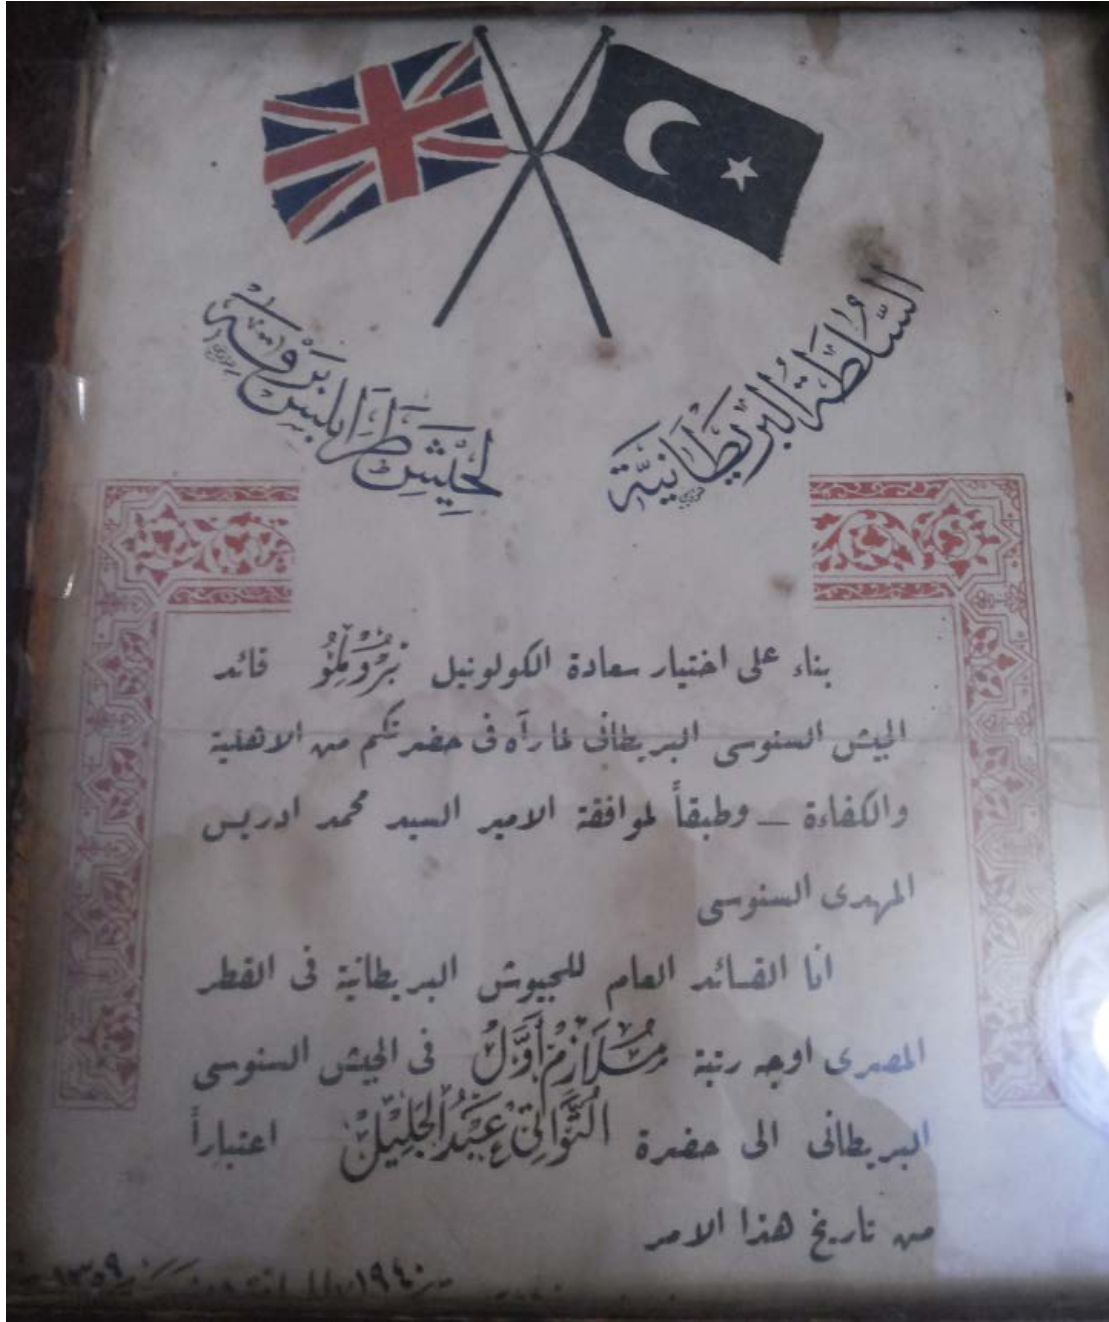 السُّلْطَةُ البَرِيطَانِيَّة
لجَيْشِ طَرَابلسَ بَرْقَة
بناء على اختيار سعادة الكولونيل بْرُومِلُو قائد
الجيش السنوسى البريطانى لما رآه فى حضرتكم من الاهلية
والكفاءة – وطبقاً لموافقة الامير السيد محمد ادريس
المهدى السنوسى
انا القائد العام للجيوش البريطانية فى القطر
المصرى اوجه رتبة مُلَازِمْ أَوَّلْ فى الجيش السنوسى
البريطانى الى حضرة التَّوَاتِى عَبْدُ الجَلِيْلْ اعتباراً
من تاريخ هذا الامر
١٩٤٠ ١٣٥٩